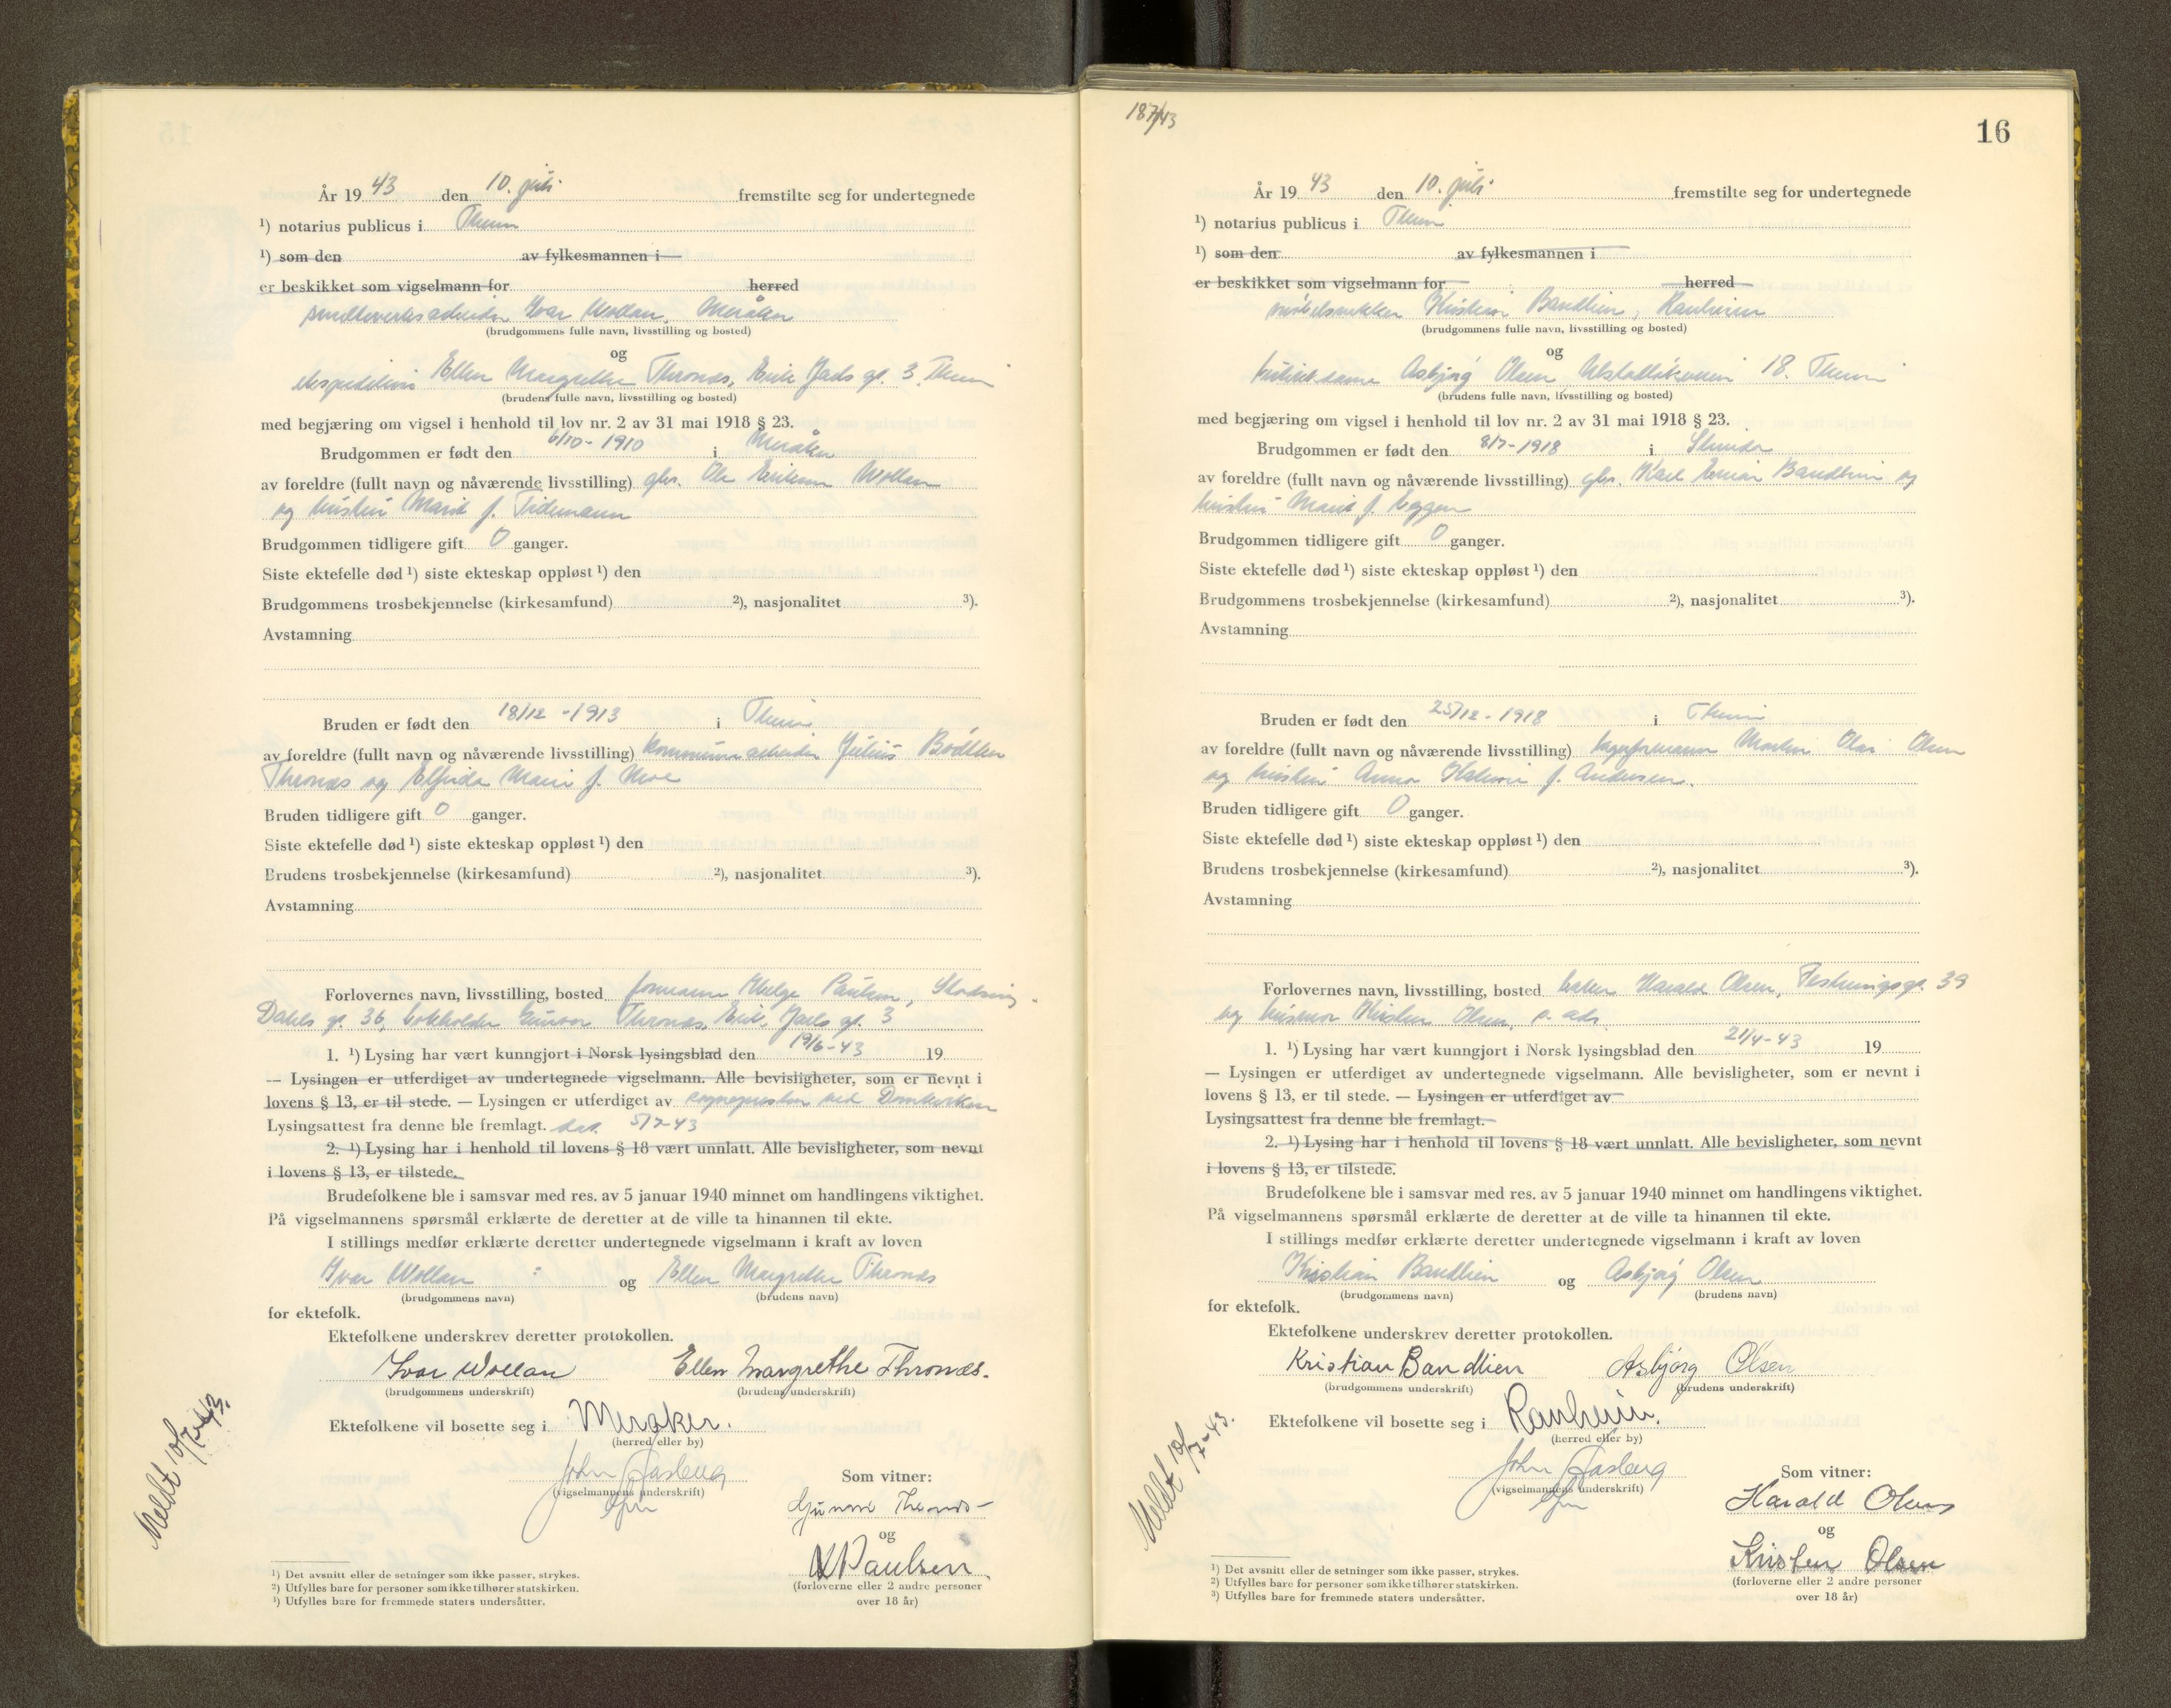 År 1943 den 10. juli fremstilte seg for undertegnede
¹) notarius publicus i Theim
¹) som den av fylkesmannen i
er beskikket som vigselmann for herred
smelteverksarbeider Ivar Wollan, Meråker
(brudgommens fulle navn, livsstilling og bosted)
og
ekspeditrise Ellen Margrethe Thronæs, Erik Jarls gt. 3, Theim
(brudens fulle navn, livsstilling og bosted)
med begjæring om vigsel i henhold til lov nr. 2 av 31 mai 1918 § 23.
Brudgommen er født den 6/10-1910 i Meråker
av foreldre (fullt navn og nåværende livsstilling) gbr. Ole Eriksen Wollan
og hustru Marit f. Tidemann
Brudgommen tidligere gift 0 ganger.
Siste ektefelle død ¹) siste ekteskap oppløst ¹) den
Brudgommens trosbekjennelse (kirkesamfund) ²), nasjonalitet ³).
Avstamning
Bruden er født den 18/12-1913 i Theim
av foreldre (fullt navn og nåværende livsstilling) kommunearbeider Julius Bødtker
Thronæs og Elfrida Marie f. Moe
Bruden tidligere gift 0 ganger.
Siste ektefelle død ¹) siste ekteskap oppløst ¹) den
Brudens trosbekjennelse (kirkesamfund) ²), nasjonalitet ³).
Avstamning
Forlovernes navn, livsstilling, bosted formann Helge Paulsen,
Dahls gt. 36, bokholder Gunnar Thronæs, Erik Jarls gt. 3
1. ¹) Lysing har vært kunngjort i Norsk lysingsblad den 19/6-43 19
— Lysingen er utferdiget av undertegnede vigselmann. Alle bevisligheter, som er nevnt i
lovens § 13, er til stede. — Lysingen er utferdiget av sognepresten ved Domkirken
Lysingsattest fra denne ble fremlagt. dat. 5/7-43
2. ¹) Lysing har i henhold til lovens § 18 vært unnlatt. Alle bevisligheter, som nevnt
i lovens § 13, er tilstede.
Brudefolkene ble i samsvar med res. av 5 januar 1940 minnet om handlingens viktighet.
På vigselmannens spørsmål erklærte de deretter at de ville ta hinannen til ekte.
I stillings medfør erklærte deretter undertegnede vigselmann i kraft av loven
Ivar Wollan og Ellen Margrethe Thronæs
(brudgommens navn) (brudens navn)
for ektefolk.
Ektefolkene underskrev deretter protokollen.
Ivar Wollan Ellen Margrethe Thronæs.
(brudgommens underskrift) (brudens underskrift)
Ektefolkene vil bosette seg i Meraker.
(herred eller by)
John Aasberg
(vigselmannens underskrift)
Som vitner:
Gunnar Thronæs
og
Paulsen
(forloverne eller 2 andre personer
over 18 år)
Meldt 10/7-43.
¹) Det avsnitt eller de setninger som ikke passer, strykes.
²) Utfylles bare for personer som ikke tilhører statskirken.
¹) Utfylles bare for fremmede staters undersåtter.
187/43
16
År 1943 den 10. juli fremstilte seg for undertegnede
¹) notarius publicus i Theim
¹) som den av fylkesmannen i
er beskikket som vigselmann for herred
møbelsnekker Kristian Bandlien, Ranheim
(brudgommens fulle navn, livsstilling og bosted)
og
Asbjørg Olsen, 18. Theim
(brudens fulle navn, livsstilling og bosted)
med begjæring om vigsel i henhold til lov nr. 2 av 31 mai 1918 § 23.
Brudgommen er født den 8/7-1918 i Strinda
av foreldre (fullt navn og nåværende livsstilling) gbr. Karl Bandlien og
hustru Marit f. Eggen
Brudgommen tidligere gift 0 ganger.
Siste ektefelle død ¹) siste ekteskap oppløst ¹) den
Brudgommens trosbekjennelse (kirkesamfund) ²), nasjonalitet ³).
Avstamning
Bruden er født den 25/12-1918 i Theim
av foreldre (fullt navn og nåværende livsstilling) lagerformann Martin Olai Olsen
og hustru Anna f. Andersen.
Bruden tidligere gift 0 ganger.
Siste ektefelle død ¹) siste ekteskap oppløst ¹) den
Brudens trosbekjennelse (kirkesamfund) ²), nasjonalitet ³).
Avstamning
Forlovernes navn, livsstilling, bosted baker Harald Olsen, Festningsgt. 39
og husmor Kirsten Olsen, s. ads.
1. ¹) Lysing har vært kunngjort i Norsk lysingsblad den 21/4-43 19
— Lysingen er utferdiget av undertegnede vigselmann. Alle bevisligheter, som er nevnt i
lovens § 13, er til stede. — Lysingen er utferdiget av
Lysingsattest fra denne ble fremlagt.
2. ¹) Lysing har i henhold til lovens § 18 vært unnlatt. Alle bevisligheter, som nevnt
i lovens § 13, er tilstede.
Brudefolkene ble i samsvar med res. av 5 januar 1940 minnet om handlingens viktighet.
På vigselmannens spørsmål erklærte de deretter at de ville ta hinannen til ekte.
I stillings medfør erklærte deretter undertegnede vigselmann i kraft av loven
Kristian Bandlien og Asbjørg Olsen
(brudgommens navn) (brudens navn)
for ektefolk.
Ektefolkene underskrev deretter protokollen.
Kristian Bandlien Asbjørg Olsen
(brudgommens underskrift) (brudens underskrift)
Ektefolkene vil bosette seg i Ranheim.
(herred eller by)
John Aasberg
(vigselmannens underskrift)
Som vitner:
Harald Olsen
og
Kirsten Olsen
(forloverne eller 2 andre personer
over 18 år)
Meldt 10/7-43.
¹) Det avsnitt eller de setninger som ikke passer, strykes.
²) Utfylles bare for personer som ikke tilhører statskirken.
³) Utfylles bare for fremmede staters undersåtter.